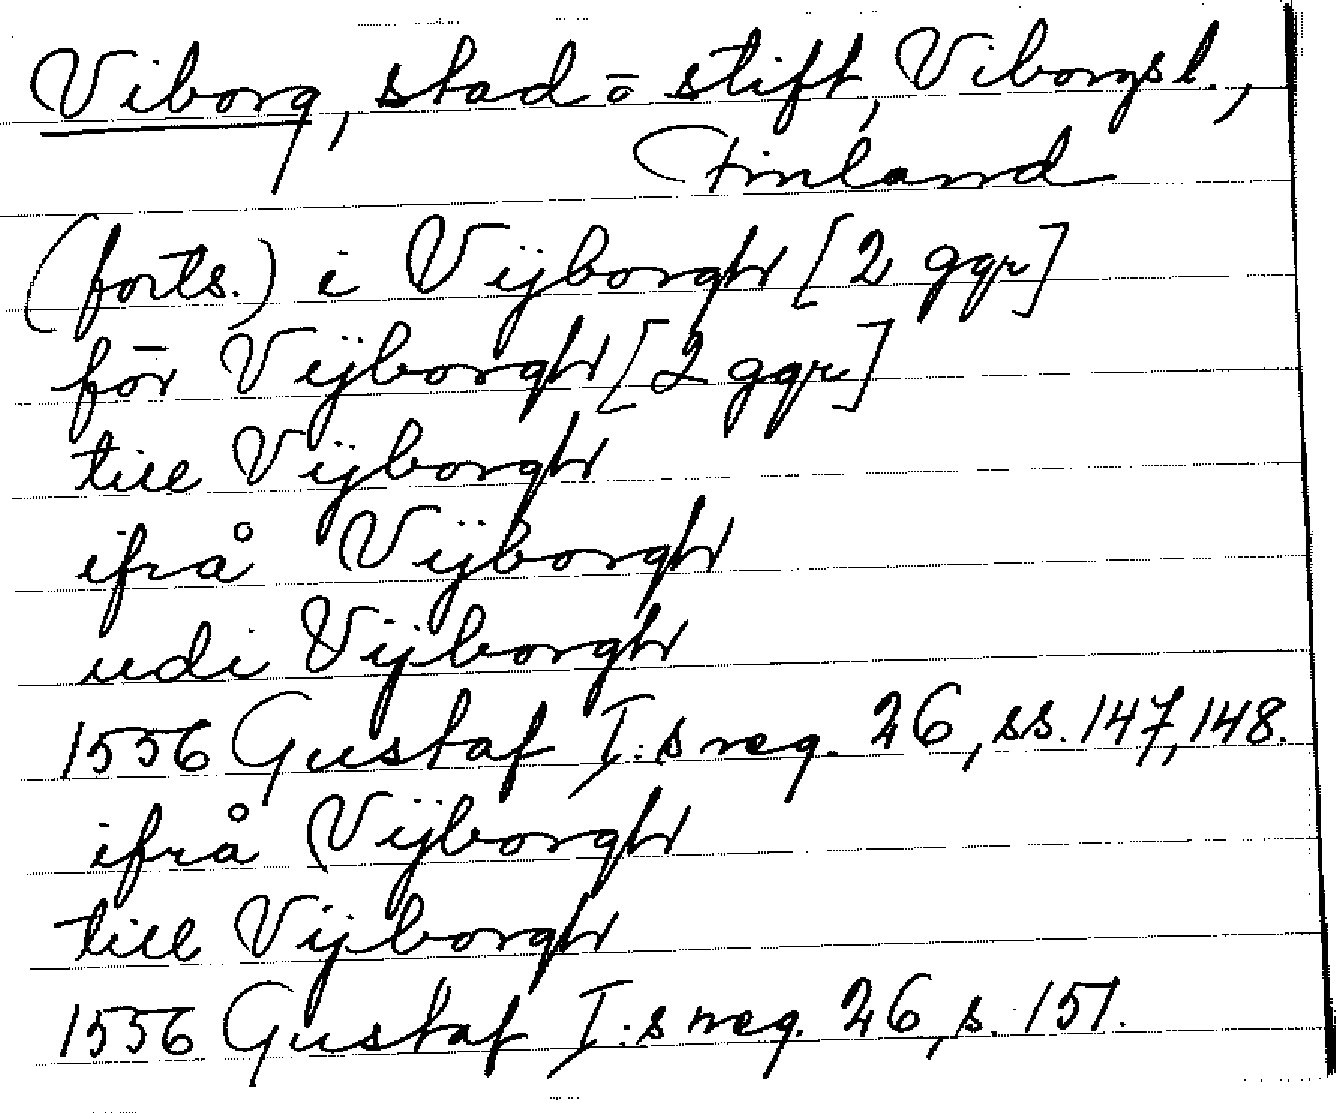 Viborg, stad o stift, Viborgsl.,
Finland
(forts.) i Vijborgh [2 ggr]
för Vijborgh [2 ggr]
till Vijborgh
ifrå Vijborgh
udi Vijborgh
1556 Gustaf I:s reg. 26, ss. 147, 148.
ifrå Vijborgh
till Vijborgh
1556 Gustaf I:s reg. 26, s. 151.